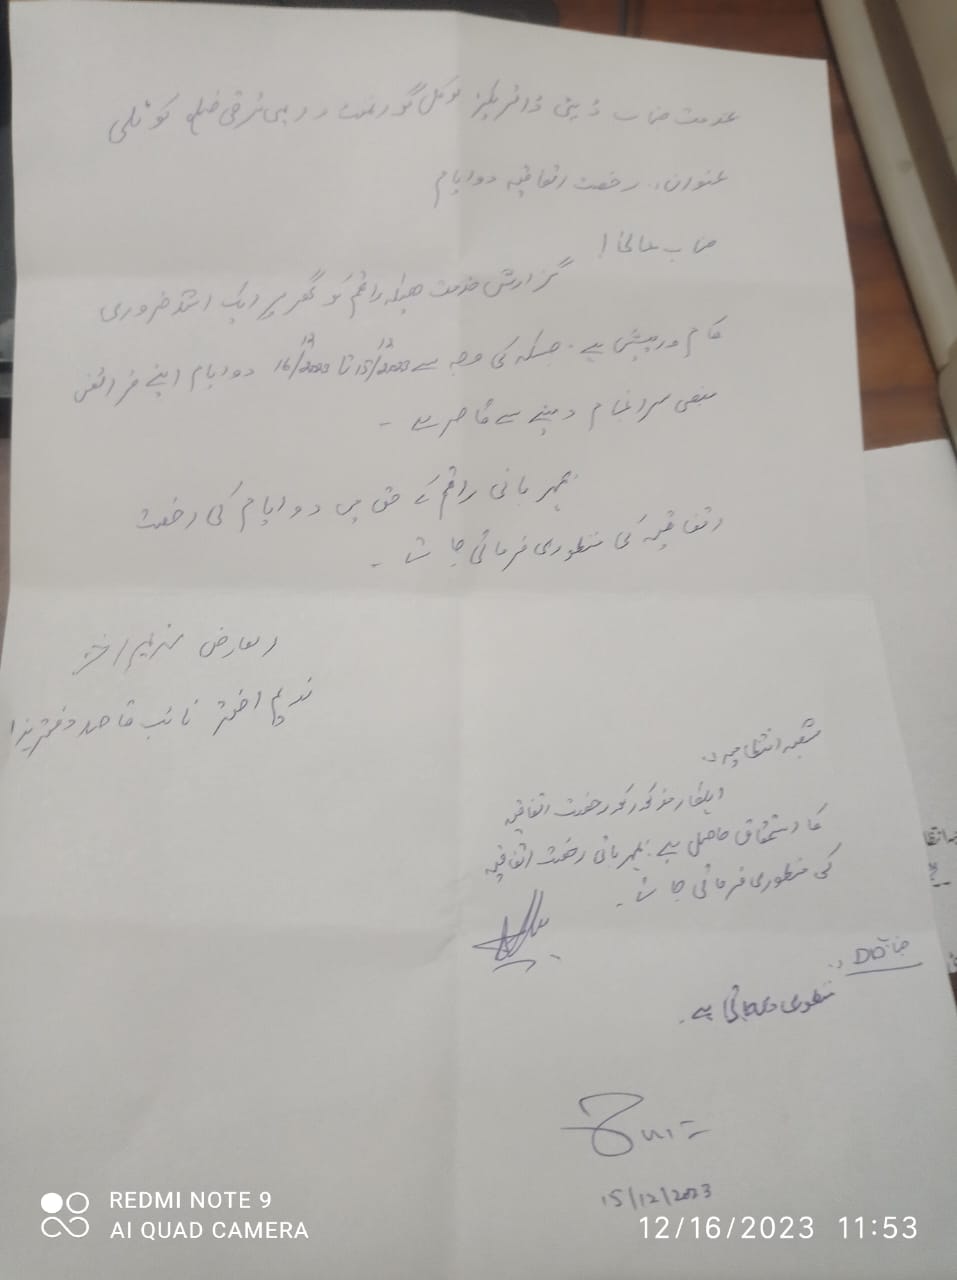 بخدمت جناب ڈپٹی ڈائریکٹر لوکل گورنمنٹ و دیہی ترقی ضلع کوٹلی
عنوان:۔ رخصت اتفاقیہ دو ایام
جناب عالی!
گزارش خدمت ہیکہ راقم کو گھر پر ایک اشد ضروری
کام درپیش ہے۔ جسکی وجہ سے 15/12/2023 تا 16/12/2023 دو ایام اپنے فرائض
منصبی سرانجام دینے سے قاصر ہے۔
بمہربانی راقم کے حق میں دو ایام کی رخصت
اتفاقیہ کی منظوری فرمائی جائے۔
العارض
ندیم اختر نائب قاصد دفتر ہذا
شعبہ انتظامیہ:۔
اہلکار مذکور کو رخصت اتفاقیہ
کا استحقاق حاصل ہے۔ بمہربانی رخصت اتفاقیہ
کی منظوری فرمائی جائے۔
جناب DD
منظوری دی جاتی ہے۔
15/12/2023
REDMI NOTE 9
AI QUAD CAMERA
12/16/2023 11:53